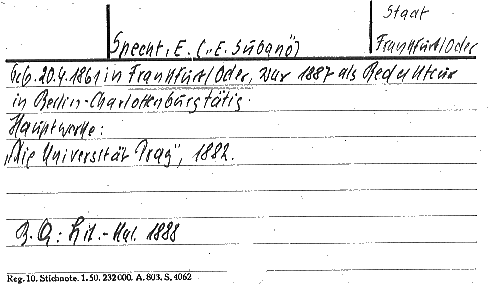 Stadt
Specht, E. („E. Subanó") Frankfurt/Oder
Geb. 20.4.1861 in Frankfurt/Oder, war 1887 als Redakteur
in Berlin-Charlottenburg tätig.
Hauptwerke:
„Die Universität Prag", 1882.
B. Q.: Lit.-Kal. 1888
Reg. 10. Stichnote. 1. 50. 232000. A. 803. S. 4062